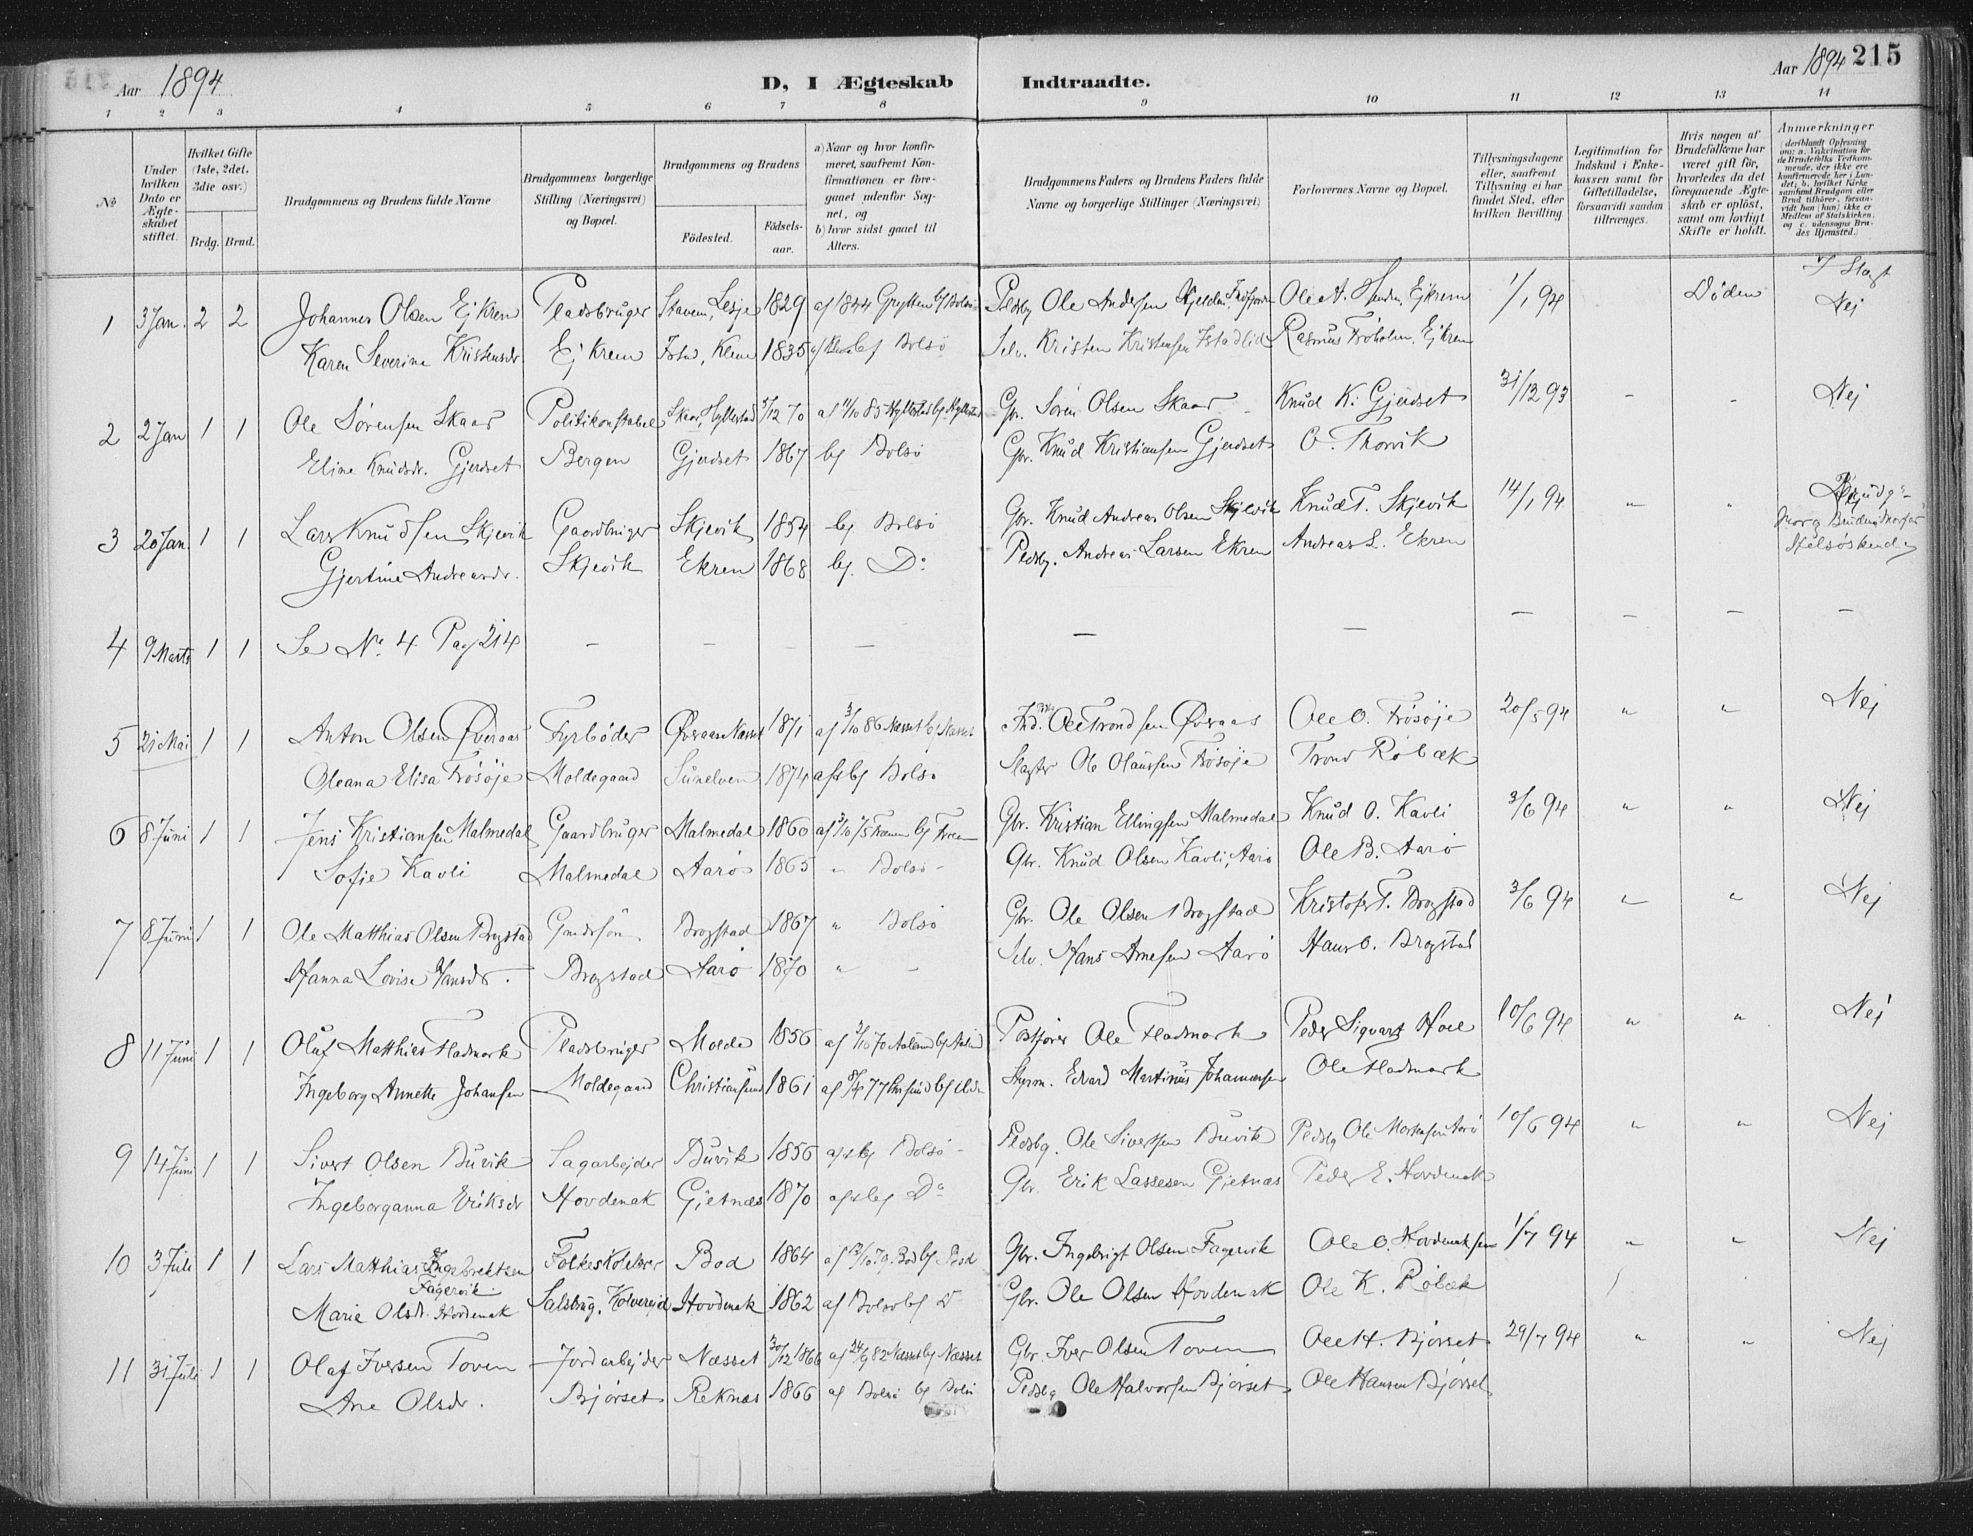 Aar 1894
D, I Ægteskab Indtraadte.
Aar 1894 215
1 2 3 4 5 6 7 8 9 10 11 12 13 14
№
Under hvilken Dato er Ægteskabet stiftet.
Hvilket Gifte (1ste, 2det, 3die osv.)
Brdg. Brud.
Brudgommens og Brudens fulde Navne
Brudgommens borgerlige Stilling (Næringsvei) og Bopæl.
Brudgommens og Brudens
Födested.
Födselsaar.
a) Naar og hvor konfirmeret, saafremt Konfirmationen er foregaaet udenfor Sognet, og
b) hvor sidst gaaet til Alters.
Brudgommens Faders og Brudens Faders fulde Navne og borgerlige Stillinger (Næringsvei)
Forlovernes Navne og Bopæl.
Tillysningsdagene eller, saafremt Tillysning ei har fundet Sted, efter hvilken Bevilling.
Legitimation for Indskud i Enkekassen samt for Giftetilladelse, forsaavidt saadan tiltrænges.
Hvis nogen af Brudefolkene har været gift för, hvorledes da det foregaaende Ægteskab er oplöst, samt om lovligt Skifte er holdt.
Anmærkninger (deriblandt Oplysning om: a. Vakcination for de Brudefolks Vedkommende, der ikke ere konfirmerede her i Landet; b. hvilket Kirkesamfund Brudgom eller Brud tilhörer, forsaavidt han (hun) ikke er Medlem af Statskirken, og c. udensogns Brudes Hjemsted.)
1 3 Jan. 2 2 Johannes Olsen Ejkrem Pladsbruger Stavem, Lesje 1829 af 1844 Grytten bf Bolsø Pldsbg Ole Andersen Hjelden Ole A. Ejkrem 1/1 94 Døden Nej
Karen Severine Kristensdr. Ejkrem 1835 Bolsø Selv. Kristen Kristensen Istadlid Rasmus Frøholm, Ejkrem
2 2 Jan 1 1 Ole Sørensen Skaar Politikonstabel Skaar, Hyllestad 5/12 70 af 11/10 85 Hyllestad bf Hyllestad Gbr. Søren Olsen Skaar Knud K. Gjerdset 31/12 93 - - Nej
Eline Knudsdr. Gjerdset Bergen Gjerdset 1867 bf Bolsø Gbr. Knud Kristiansen Gjerdset O. Thorvik
3 20 Jan. 1 1 Lars Knudsen Skjevik Gaardbruger Skjevik 1854 bf Bolsø Gbr. Knud Andreas Olsen Skjevik Knud T. Skjevik 14/1 94 " "
Gjertine Andreasdr. Skjevik Ekren 1868 bf. Do Pldsbg. Andreas Larsen Ekren Andreas L. Ekren
4 9 Marts 1 1 Se No 4 Pag 214 - - - - - - - - -
5 21 Mai 1 1 Anton Olsen Øveraas Fyrbøder Øveraas Næsset 1871 af 3/10 86 Næsset bf Næsset Ole Trondsen Øveraas Ole O. Frøsøje 20/5 94 " " Nej
Oleana Elisa Frøsøje Moldegaard Sunelven 1874 Bolsø Ole Olaussen Frøsøje Trond Røbæk
6 8 Juni 1 1 Jens Kristiansen Malmedal Gaardbruger Malmedal 1860 af 3/10 75 Fræna bf Fræn Gbr. Kristian Ellingsen Malmedal Knud O. Kavli 3/6 94 " " Nej
Sofie Kavli Malmedal Aarø 1865 " Bolsø - Gbr. Knud Olsen Kavli, Aarø Ole B. Aarø
7 8 Juni 1 1 Ole Matthias Olsen Brogstad Gaardssøn Brogstad 1867 " Bolsø Gbr. Ole Olsen Brogstad Kristofer T. Brogstad 3/6 94 " " Nej
Hanna Lovise Hansdr. Brogstad Aarø 1870 " - Selv. Hans Arnesen Aarø Hans O. Brogstad
8 11 Juni 1 1 Oluf Matthias Fladmark Pladsbruger Molde 1856 Postfører Ole Fladmark Peder Sigvart Hoel 10/6 94 " " Nej
Ingeborg Annette Johansen Moldegaard Christiansund 1861 Styrm. Edvard Martinus Johannesen Ole Fladmark
9 14 Juni 1 1 Sivert Olsen Buvik Sagarbejder Buvik 1856 Bolsø - Pldsbg. Ole Sivertsen Buvik Pldsbg Ole Mortensen Aarø 10/6 94 " " Nej
Ingeborganna Eriksdr Hovdenak Gjetnæs 1870 Do Gbr. Erik Lassesen Gjetnæs Peder E. Hovdenak
10 3 Juli 1 1 Lars Matthias Ingebrektsen Folkeskolelærer Bod 1864 Gbr. Ingebrigt Olsen Fagervik Ole O. Hovdenaksen 1/7 94 " " Nej
Fagervik
Marie Olsdr. Hovdenak Salsbrug, Kolvereid Hovdenak 1862 af Bolsø bf Do Gbr. Ole Olsen Hovdenak Ole K. Røbæk
11 31 Juli 1 1 Olaf Iversen Toven Jordarbejder Næsset 30/12 1866 af 24/9 82 Næsset bf Næsset Gbr. Iver Olsen Toven Ole H. Bjørset 29/7 94 " " Nej
Ane Olsdr. Bjørset Reknæs 1866 af Bolsø bf Bolsø Pldsbg Ole Halvorsen Bjørset Ole Hansen Bjørset